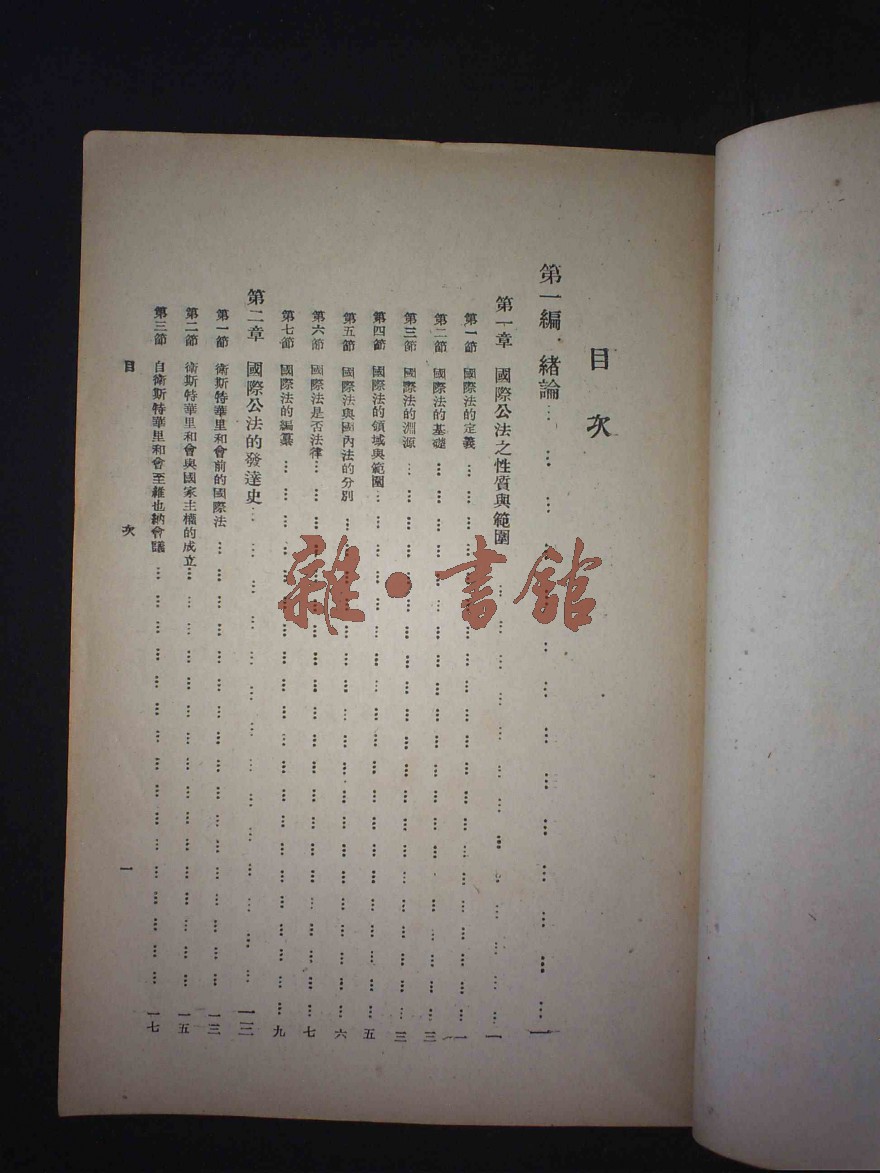 目次
第一編 緒論………………………………………一
第一章 國際公法之性質與範圍………………………………………一
第一節 國際法的定義………………………………………一
第二節 國際法的基礎………………………………………三
第三節 國際法的淵源………………………………………三
第四節 國際法的領域與範圍………………………………………五
第五節 國際法與國內法的分別………………………………………六
第六節 國際法是否法律………………………………………七
第七節 國際法的編纂………………………………………九
第二章 國際公法的發達史………………………………………一三
第一節 衛斯特華里和會前的國際法………………………………………一三
第二節 衛斯特華里和會與國家主權的成立………………………………………一五
第三節 自衛斯特華里和會至維也納會議………………………………………一七
目次 一
雜·書館